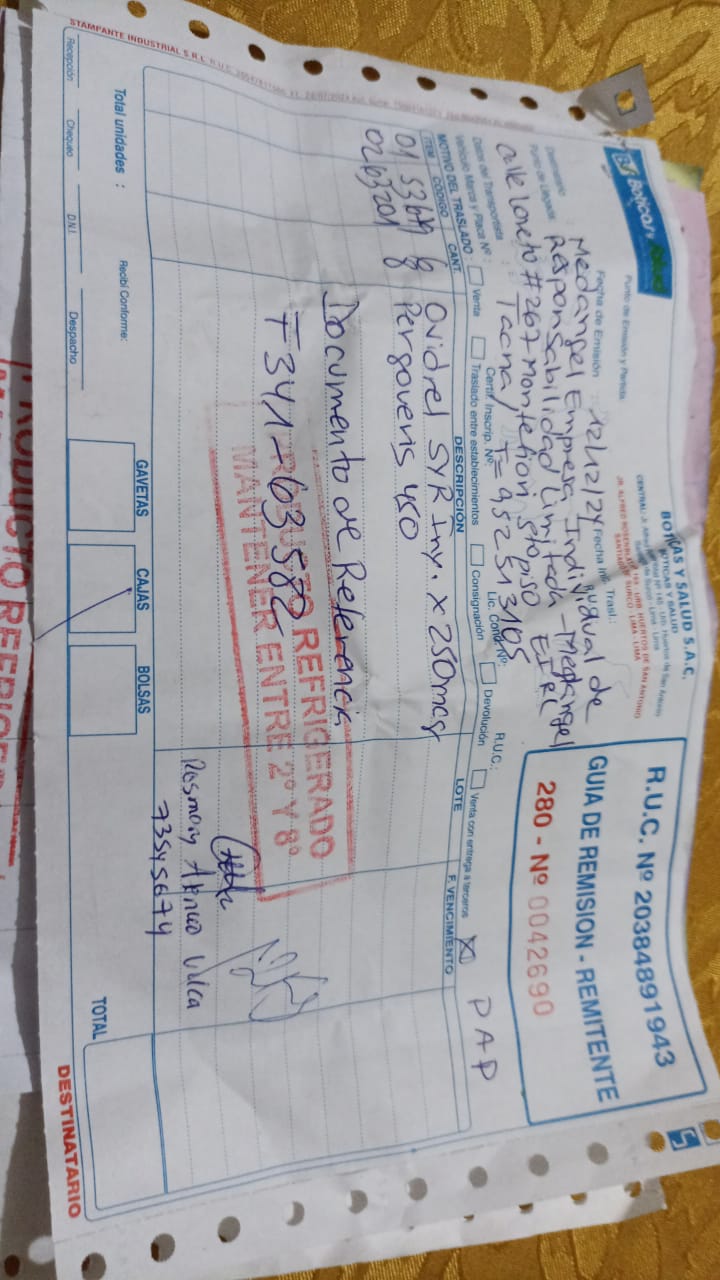 STAMPANTE INDUSTRIAL S.R.L. R.U.C.
BS Boticas y Salud
BOTICAS Y SALUD S.A.C.
BOTICAS Y SALUD
SANTIAGO SURCO LIMA - LIMA
R.U.C. Nº 20384891943
GUIA DE REMISION - REMITENTE
280 - Nº 0042690
Punto de Emisión y Partida
Fecha de Emisión 12/12/24 Fecha Inic. Trasl.:
Destinatario Medangel Empresa Individual de
Responsabilidad Limitada - Medangel
EIRL
Punto de Llegada
calle Loreto # 267 Montechion
Tacna / T= 952513105
Datos del Transportista
Vehículo Marca y Placa Nº: Certif. Inscrip. Nº: Lic. Cond. Nº: R.U.C.:
MOTIVO DEL TRASLADO: Venta Traslado entre establecimientos Consignación Devolución Venta con entrega a terceros X PAP
ITEM CODIGO CANT. DESCRIPCIÓN LOTE F. VENCIMIENTO
01 8 Ovidrel SYR Iny. x 250mcg
02 63201 8 Pergoveris 450
Documento de Referencia
F341-63582
PRODUCTO REFRIGERADO
MANTENER ENTRE 2º Y 8º
73545674
Total unidades :
Recibí Conforme:
GAVETAS CAJAS BOLSAS TOTAL
Recepción Chequeo D.N.I. Despacho
DESTINATARIO
PRODUCTO REFRIGERADO